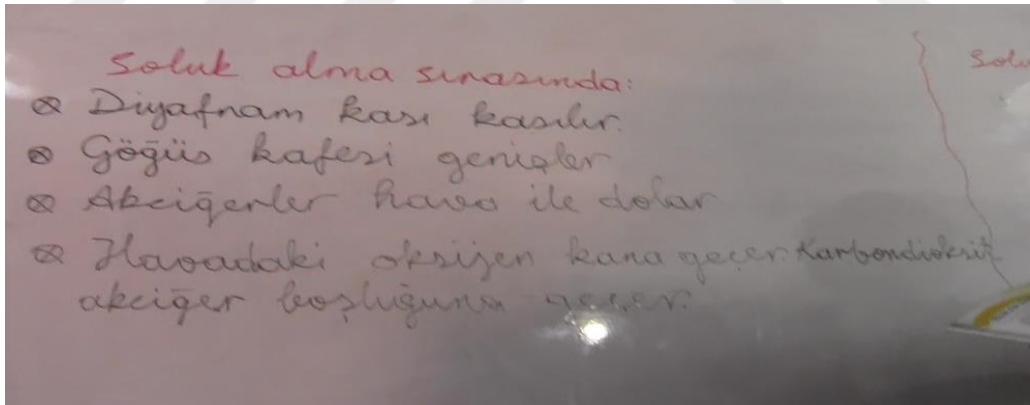 Soluk alma sırasında:
⊗ Diyafram kası kasılır.
⊗ Göğüs kafesi genişler
⊗ Akciğerler hava ile dolar
⊗ Havadaki oksijen kana geçer. Karbondioksit
akciğer boşluğuna geçer.